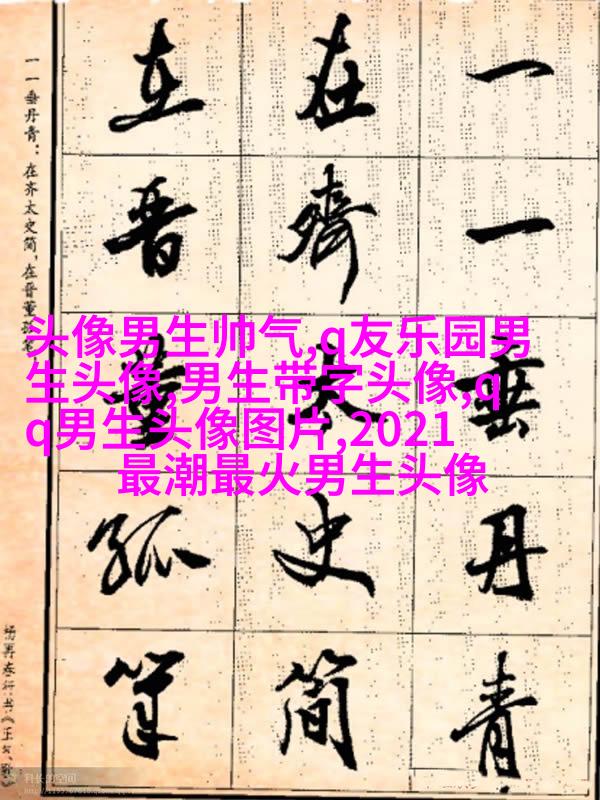 一一垂丹青
在齊太史简
在晋董狐笔
一一垂丹青：在齐太史简，在晋董狐
杨再春行书《正气歌
头像男生帅气,q友乐园男
生头像,男生带字头像,q
q男生头像图片,2021
最潮最火男生头像
科长的空间